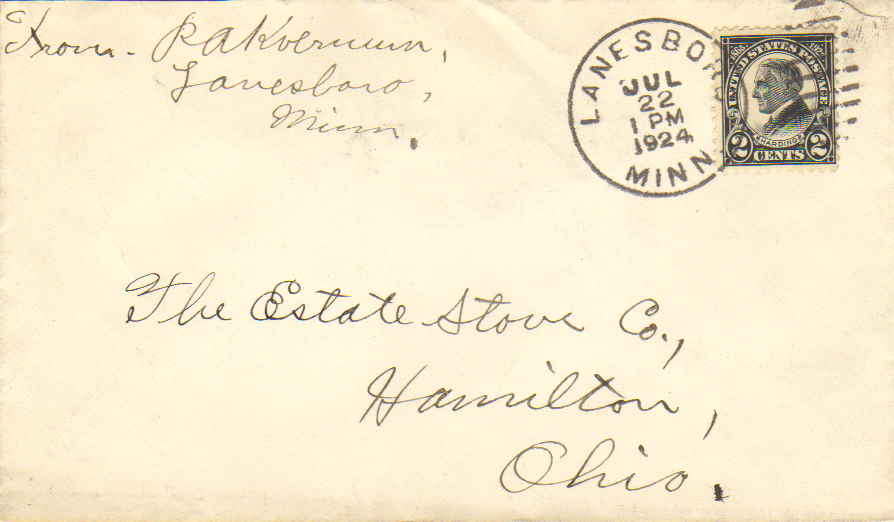 From - R A Kvernum,
Lanesboro,
Minn.
LANESBORO
JUL
22
1 PM
1924
MINN
1865 1923
UNITED STATES POSTAGE
HARDING
2 CENTS 2
The Estate Stove Co.,
Hamilton,
Ohio.